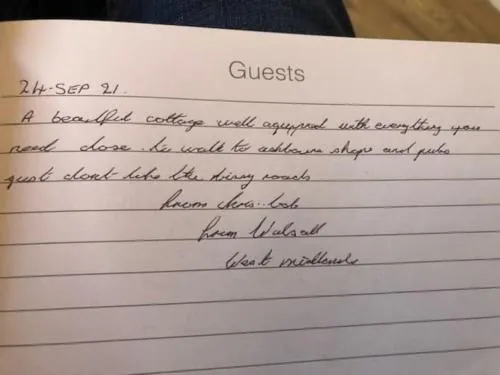 Guests
24-SEP 21.
A beautful cottage well aquipped with everything you
need close. to walk to ashbourne shops and pubs
just dont like the windy roads
from chris..bob
from Walsall
West midlands